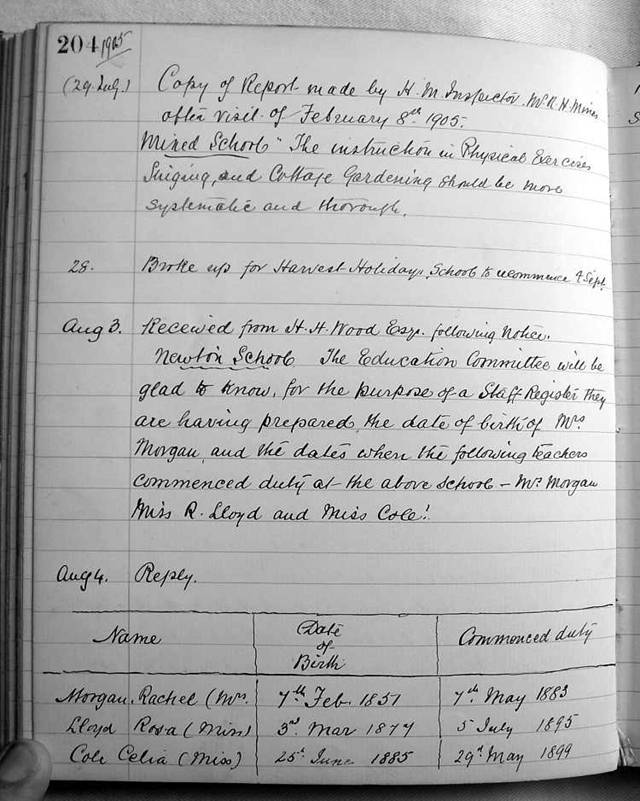 204 1905
(29. July.) Copy of Report made by H. M. Inspector. Mr. R. H.
after visit of February 8th 1905.
Mixed School "The instruction in Physical Exercises
Singing, and Cottage Gardening should be more
systematic and thorough.
28. Broke up for Harvest Holidays. School to recommence 4 Sept.
Aug 3. Received from H. H. Wood Esqr. following Notice.
Newton School The Education Committee will be
glad to know, for the purpose of a Staff Register they
are having prepared, the date of birth of Mrs
Morgan, and the dates when the following teachers
commenced duty at the above school – Mrs Morgan
Miss R. Lloyd and Miss Cole!
Aug 4. Reply.
Name Date of Birth Commenced duty
Morgan, Rachel (Mrs. 7th Feb. 1851 7th May 1883
Lloyd Rosa (Miss) 3rd Mar 1877 5 July 1895
Cole Celia (Miss) 25th June 1885 29th May 1899